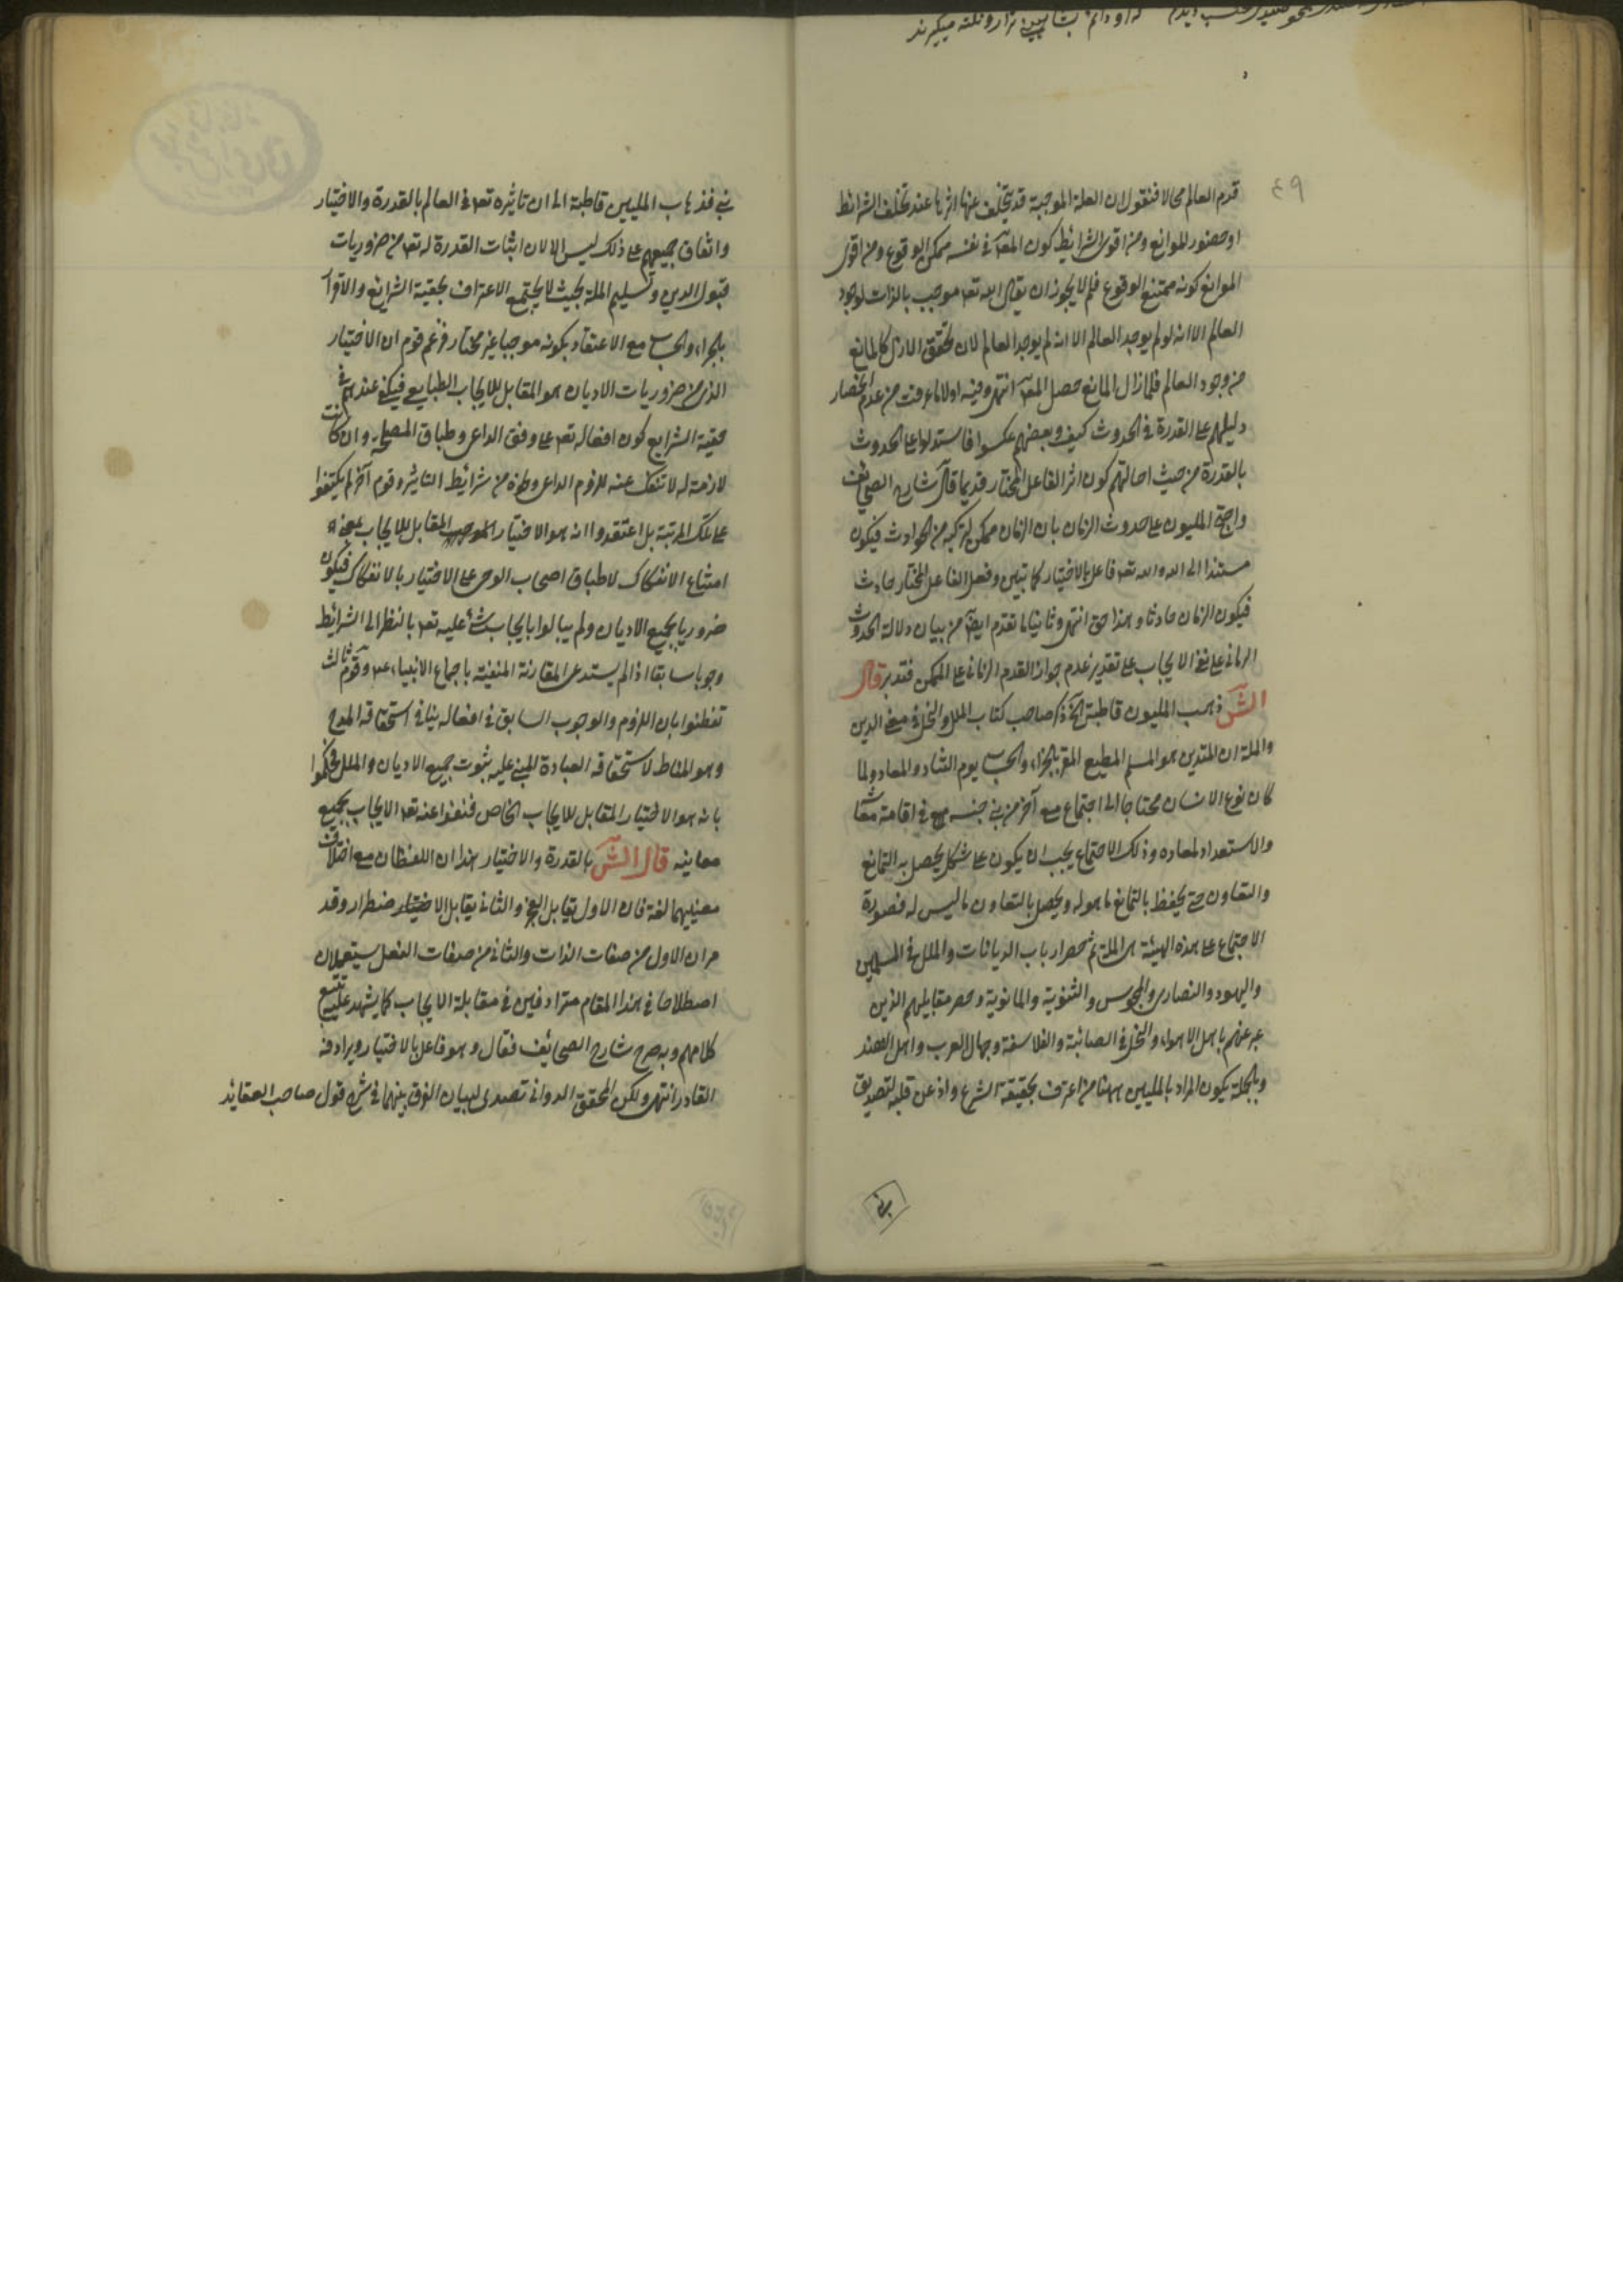 ٤٩
قدم العالم محالا فنقول ان العلة الموجبة قد يتخلف عنها اثرها عند تخلف الشرائط
او حضور الموانع ومن اقوى الشرائط كون المعلول في نفسه ممكن الوقوع ومن اقوى
الموانع كونه ممتنع الوقوع فلم لا يجوز ان يقال الله تعالى موجب بالذات لوجود
العالم الا انه لو لم يوجد العالم الا انه لم يوجد العالم لان تحقق الازل كالمانع
من وجود العالم فلما زال المانع حصل انتهى وفيه اولا ما عرفت من عدم انحصار
دليلهم على القدرة في الحدوث كيف وبعضهم عكسوا فاستدلوا على الحدوث
بالقدرة من حيث احالتهم كون اثر الفاعل المختار قديما قال شارح الصحائف
واحتج المليون على حدوث الزمان بان الزمان ممكن لتركبه من الحوادث فيكون
مستندا الى الله والله تعالى فاعل بالاختيار كما تبين وفعل الفاعل المختار حادث
فيكون الزمان حادثا وهذا حق انتهى وثانيا ما تقدم ايضا من بيان دلالة الحدوث
الزماني على نفي الايجاب على تقدير عدم جواز القدم الزماني على الممكن فتدبر قال
الش ذهب المليون قاطبة الخ ذكر صاحب كتاب الملل والنحل في معنى الدين
والملة ان المتدين هو المسلم المطيع المقر بالجزاء والحساب يوم التناد والمعاد ولما
كان نوع الانسان محتاجا الى اجتماع مع آخر من بني جنسه في اقامة معاشه
والاستعداد لمعاده وذلك الاجتماع يجب ان يكون على شكل يحصل به التمانع
والتعاون حتى يحفظ بالتمانع ما هو له ويحصل بالتعاون ما ليس له فصورة
الاجتماع على هذه الهيئة هى الملة ثم حصر ارباب الديانات والملل في المسلمين
واليهود والنصارى والمجوس والثنوية والمانوية وحصر مقابليهم الذين
عبر عنهم باهل الاهواء والنحل في الصابئة والفلاسفة وجهال العرب واهل الهند
وبالجملة يكون المراد بالمليين ههنا من اعترف بحقيقة الشرع واذعن قلبه لتصديق
فذهاب المليين قاطبة الى ان تاثيره تعالى في العالم بالقدرة والاختيار
واتفاق جميعهم على ذلك ليس الا لان اثبات القدرة له تعالى من ضروريات
قبول الدين وتسليم الملة بحيث لا يجتمع الاعتراف بحقية الشرائع والاقرار
بالجزاء والحساب مع الاعتقاد بكونه موجبا غير مختار فزعم قوم ان الاختيار
الذي من ضروريات الاديان هو المقابل للايجاب الطبايعي فيكفي عندهم في
حقية الشرايع كون افعاله تعالى على وفق الداعي وطباق المصلحة وان كانت
لازمة له لا تنفك عنه للزوم الداعي وغيره من شرائط التاثير وقوم آخر لم يكتفوا
على تلك المرتبة بل اعتقدوا انه هو الاختيار المقابل للايجاب بمعنى
امتناع الانفكاك لاطباق اصحاب الوحى على الاختيار بالانفكاك فيكون
ضروريا بجميع الاديان ولم يبالوا بايجاب شئ عليه تعالى بالنظر الى الشرائط
وجوبا سابقا اذا لم يستدعى المقارنة المنفية باجماع الانبياء وقوم ثالث
تفطنوا بان اللزوم والوجوب السابق في افعاله ينافي استحقاقه المدح
وهو المناط لاستحقاقه العبادة المبني عليه ثبوت جميع الاديان والملل فحكموا
بانه هو الاختيار المقابل للايجاب الخاص فنفوا عنه تعالى الايجاب بجميع
معانيه قال الش بالقدرة والاختيار هذان اللفظان مع اختلاف
معنييهما لغة فان الاول يقابل العجز والثاني يقابل الاضطرار وقد
مر ان الاول من صفات الذات والثاني من صفات الفعل يستعملان
اصطلاحا في هذا المقام مترادفين في مقابلة الايجاب كما يشهد عليه تتبع
كلامهم وبه صرح شارح الصحائف فقال وهو فاعل بالاختيار ويرادفه
القادر انتهى ولكن المحقق الدواني تصدى لبيان الفرق بينهما في شرح قول صاحب العقايد